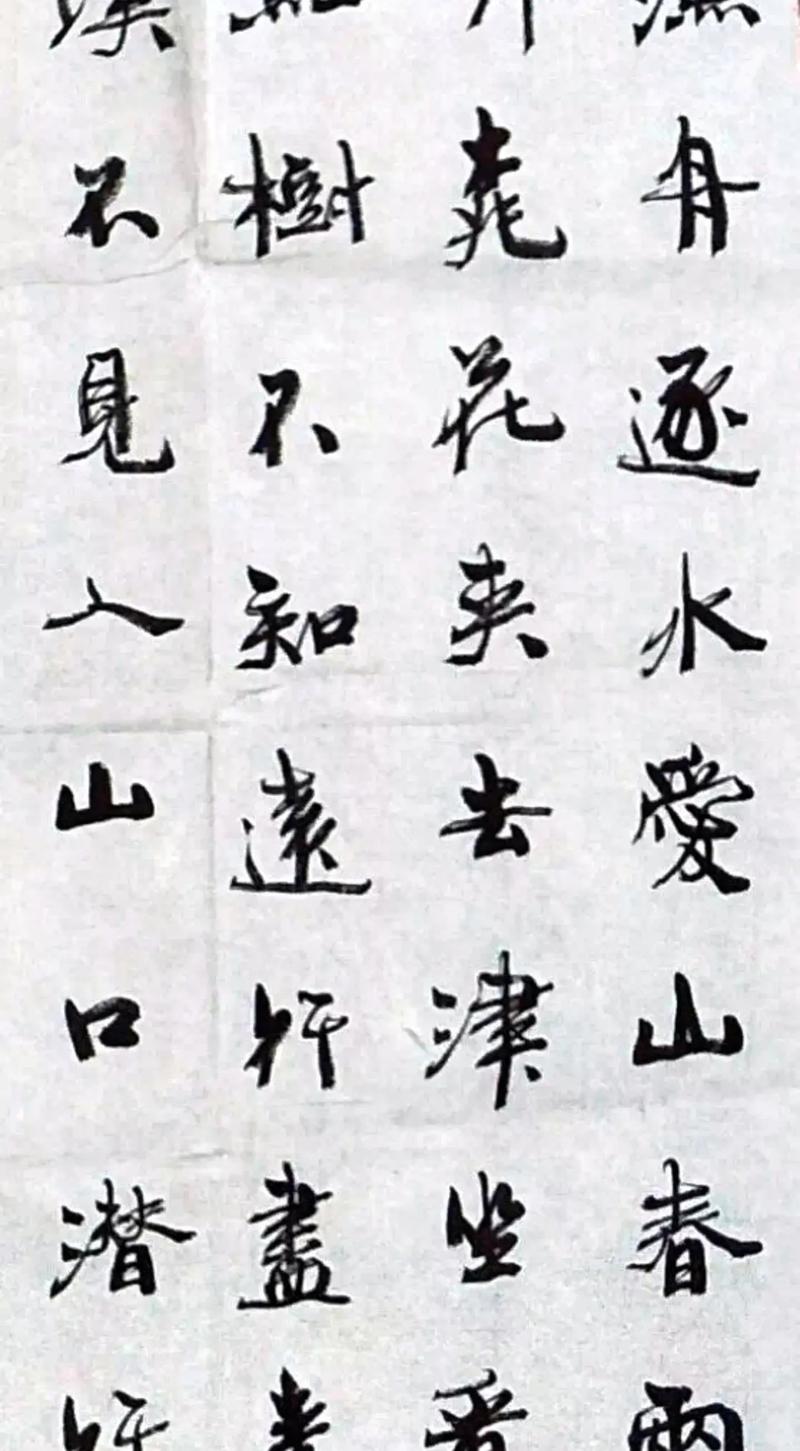 漁舟逐水愛山春兩
岸桃花夾去津坐看
樹不知遠行盡青
溪不見人山口潜行